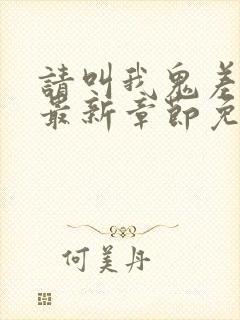 請叫我鬼差
最新章節免
何美丹